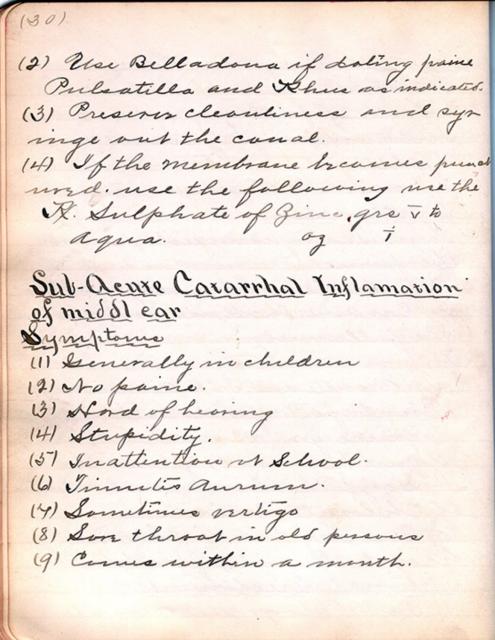 (30)
(2) Use Belladona if dolting paine
Pulsatilla and Rhus as indicated.
(3) Preserve cleanliness and syr
inge out the canal.
(4) If the membrane becomes punct
ured. use the following use the
Rx. Sulphate of Zinc. grs v to
aqua. oz i
Sub-Acute Catarrhal Inflamation
of middl ear
Symptoms
(1) Generally in children
(2) No paine.
(3) Hard of hearing
(4) Stupidity.
(5) Inattention at School.
(6) Tinnitis Aurum.
(7) Sometimes vertigo
(8) Sore throat in old persons
(9) Comes within a month.